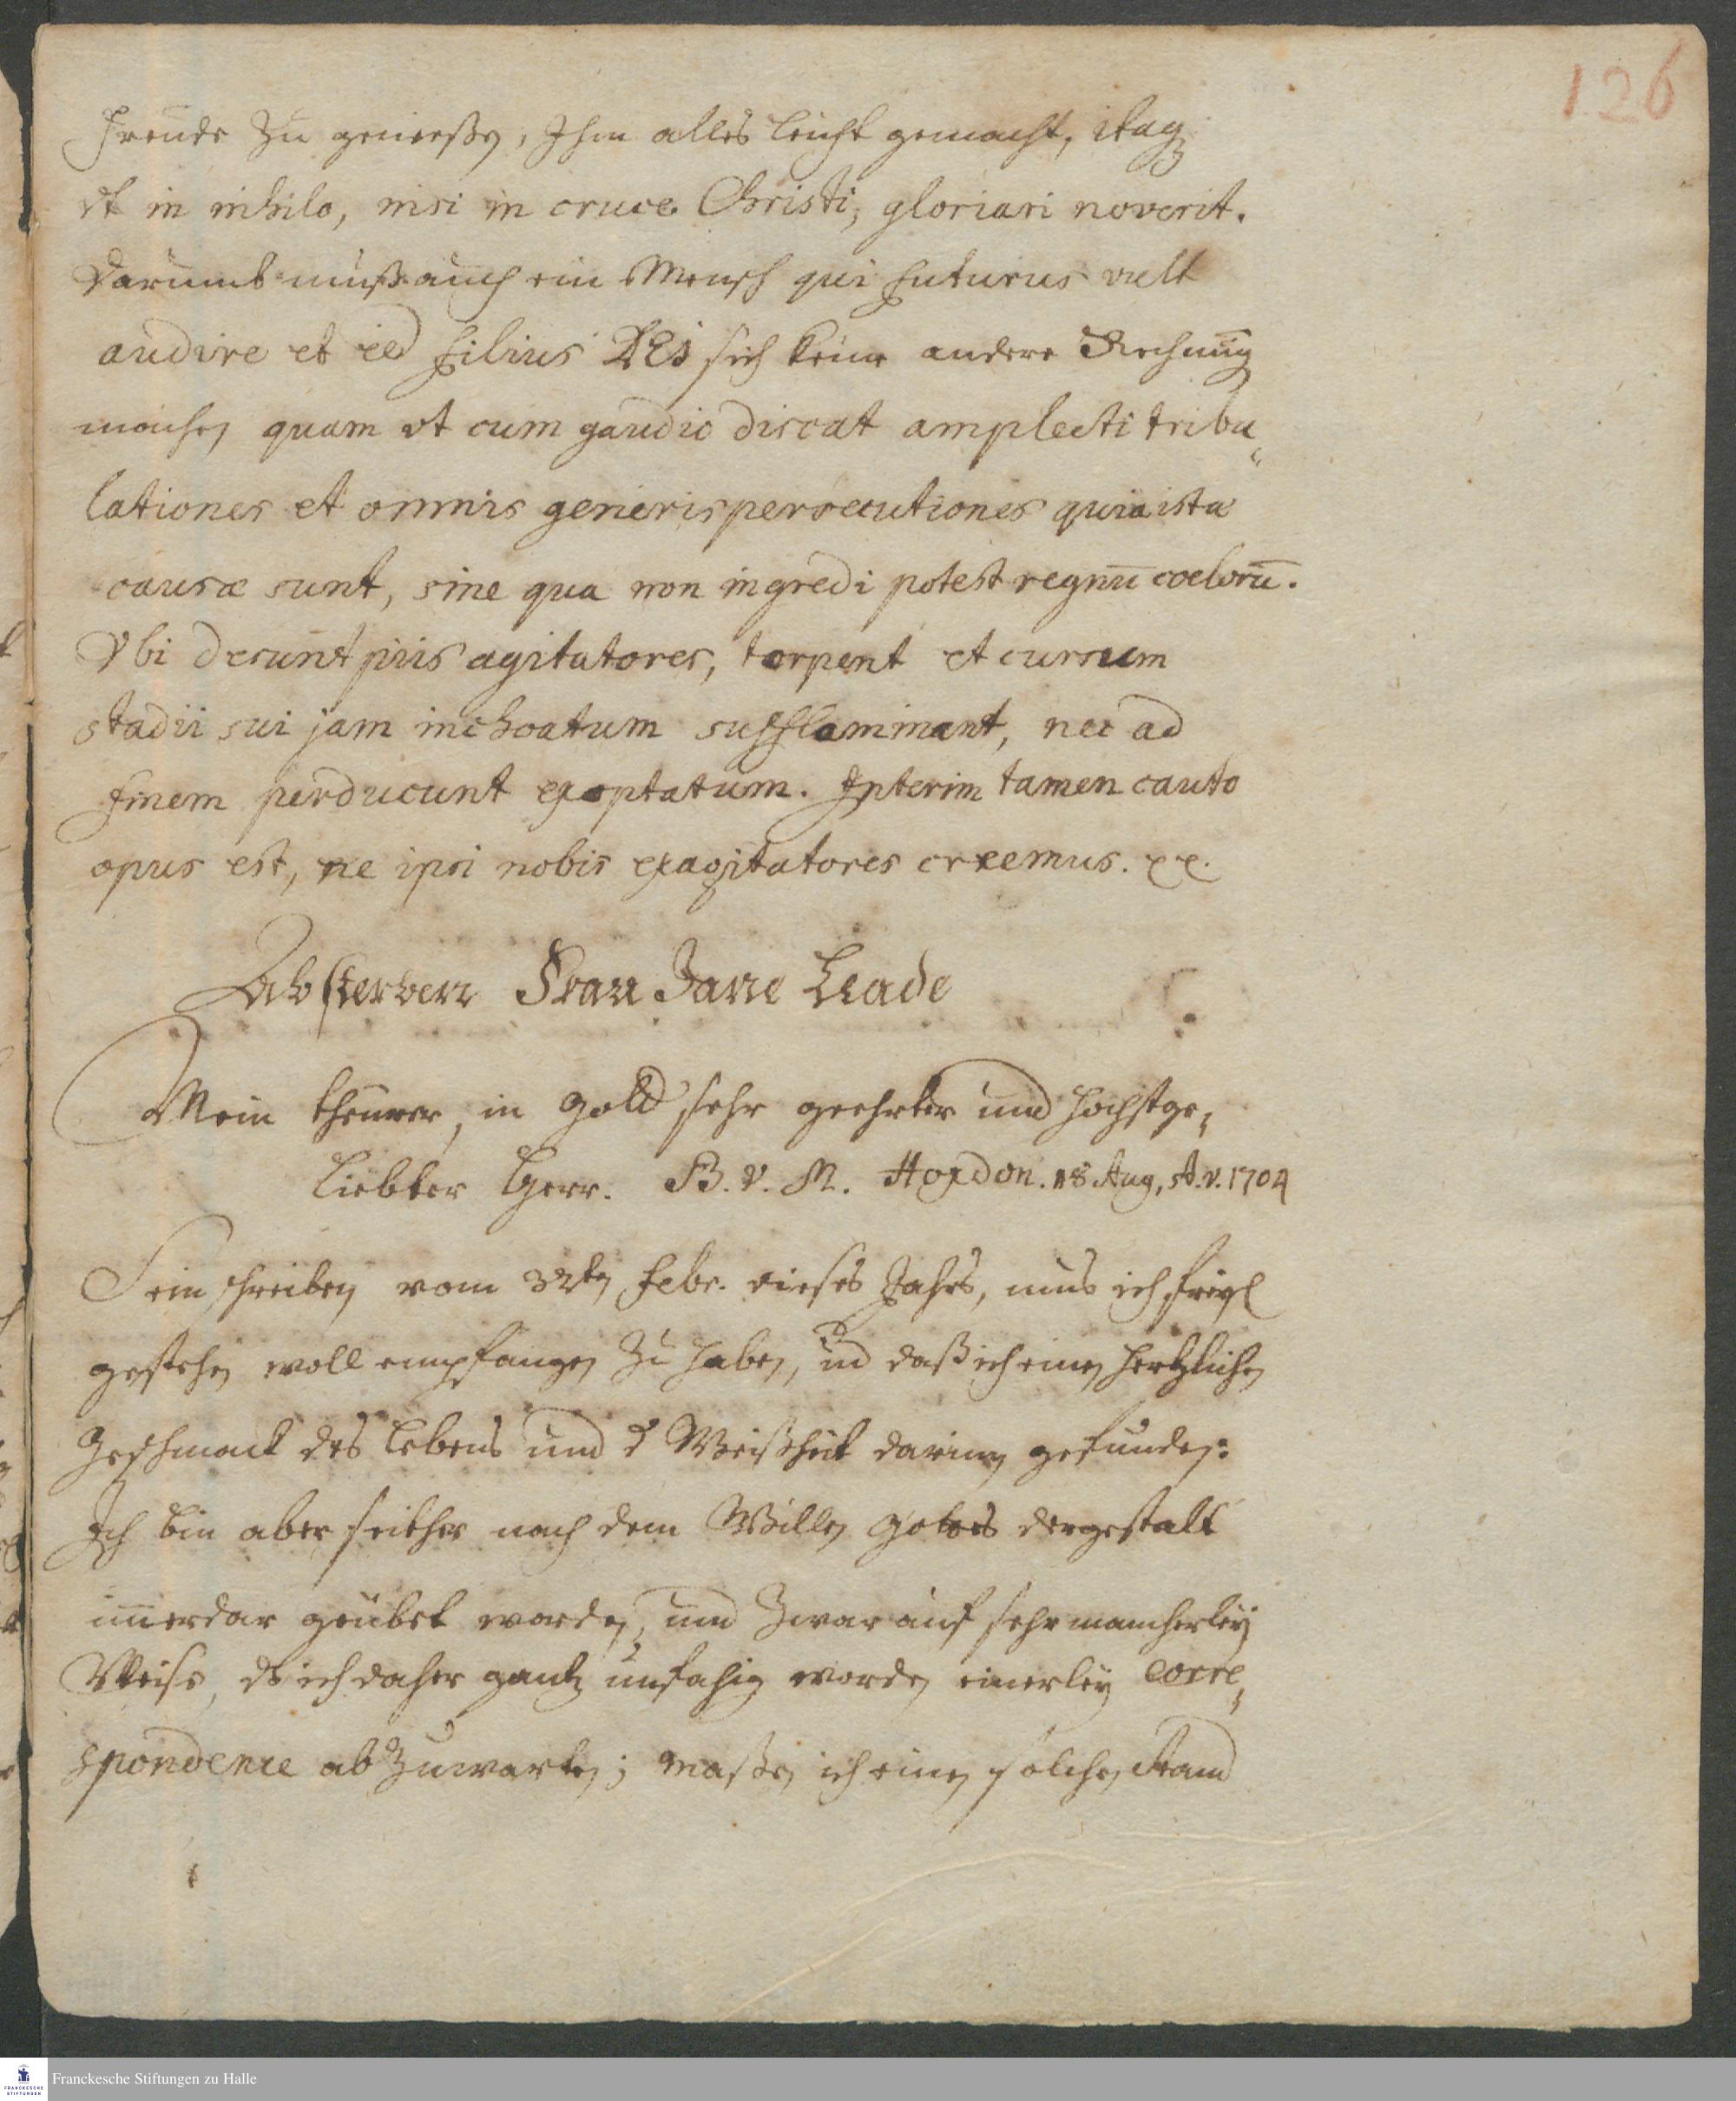 126
Freude zu genießen, Ihm alles leicht gemacht, itaq;
vt in nihilo, nisi in cruce Christi, gloriari noverit.
Darumb muß auch ein Mensch qui futurus vult
audire et filius DEi sich keine andere Rechnūg
machen quam vt cum gaudio discat amplecti tribu„
lationes et omnis generis persecutiones quia istæ
causæ sunt, sine qua non ingredi potest regnū coelorū.
Vbi desunt piis agitatores, torpent et cursum
stadii sui jam inchoatum sufflaminant, nec ad
finem perducunt exoptatum. Interim tamen cauto
opus est, ne ipsi nobis exagitatores creemus.
Absterben Frau Jane Leade
Mein theurer, in Gott sehr geehrter und hochstge„
liebter Herr. B. v. M. Hoxdon. 18 Aug, st. v. 1704
Sein schreiben vom Febr. dieses Jahrs, mus ich
gestehen woll empfangen zu haben, ūd daß ich einen hertzlichen
Geschmack des Lebens und d Weißheit darinen gefunden:
Ich bin aber seither nach dem Willen Gottes dergestalt
im̅erdar geübet worden, und zwar auf sehr mancherley
Weise, dß ich daher gantz unfahig worden einerley corre„
spondence abzuwarten; maßen ich einen solchen stand
Franckesche Stiftungen zu Halle